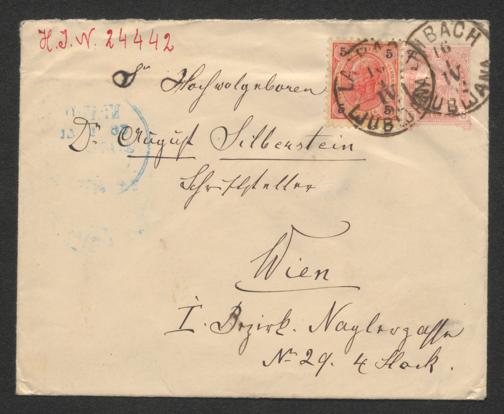 H. I. N. 24442
Hochwolgeboren
Dr August Silberstein
Schriftsteller
Wien
I. Bezirk. Naglergasse
No 29. 4 Stock.
5 5
5 5
LAIBACH
LJUBLJANA
LAIBACH
16
IV
LJUBLJANA